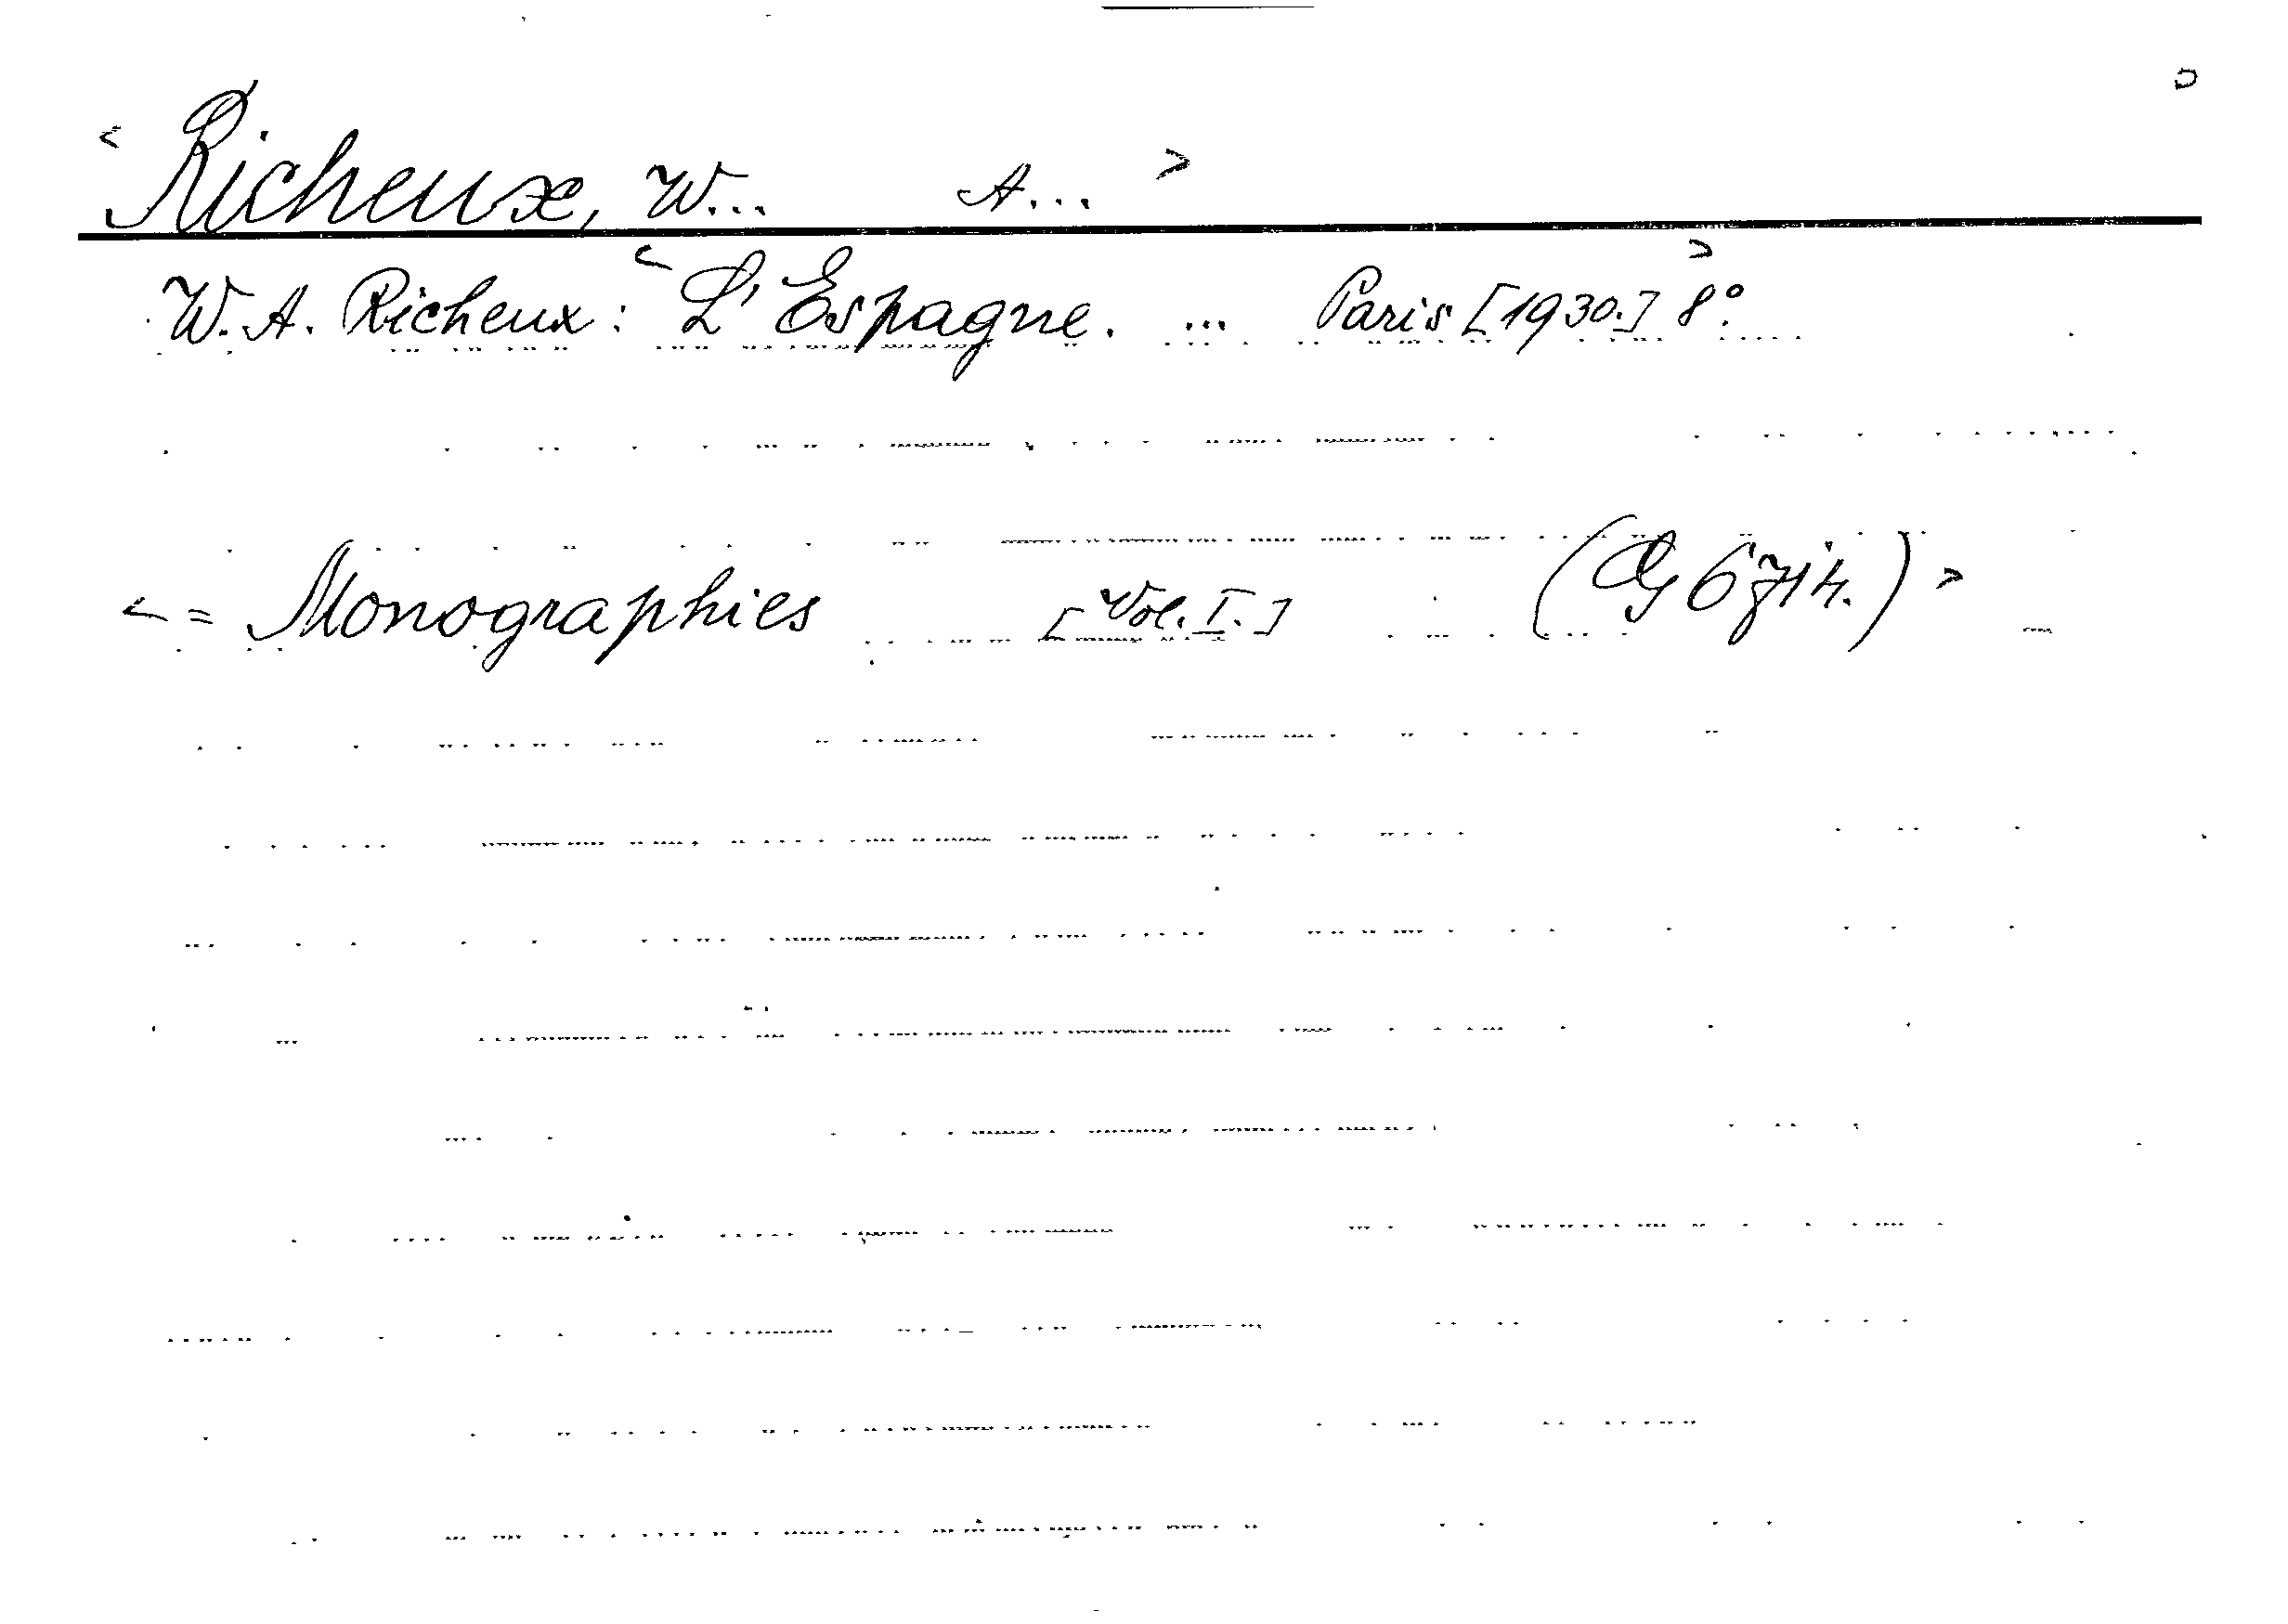 < Richeux, W... A... >
W. A. Richeux: < L'Espagne. ... > Paris [1930.] 8°.
< = Monographies [Vol. I.] 6714.) >